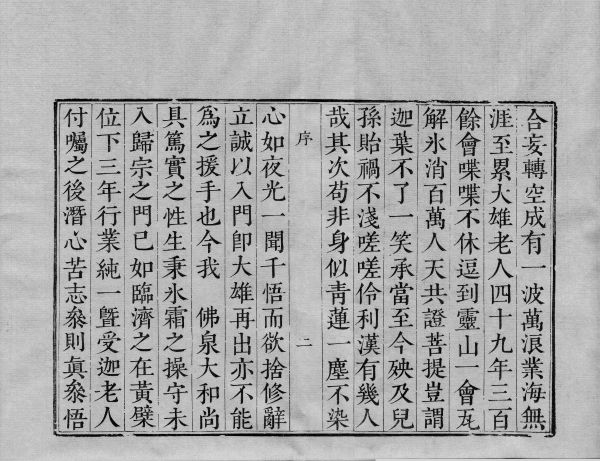 合妄轉空成有一波萬浪業海無
涯至累大雄老人四十九年三百
餘會喋喋不休逗到靈山一會瓦
解氷消百萬人天共證菩提豈謂
迦葉不了一笑承當至今殃及兒
孫貽禍不淺嗟嗟伶利漢有幾人
哉其次苟非身似靑蓮一塵不染
序 二
心如夜光一聞千悟而欲捨修辭
立誠以入門卽大雄再出亦不能
爲之援手也今我 佛泉大和尚
具篤實之性生秉氷霜之操守未
入歸宗之門已如臨濟之在黃檗
位下三年行業純一曁受迦老人
付囑之後潛心苦志叅則眞叅悟